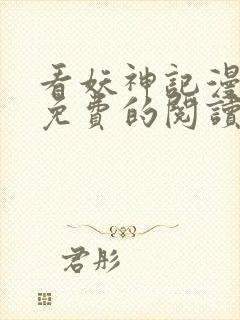 看妖神記漫
免費的閱讀
君彤